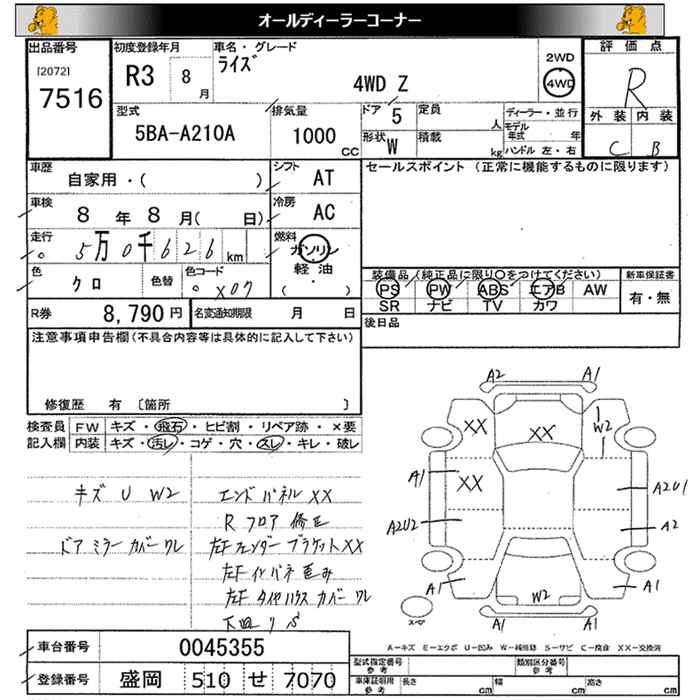 オールディーラーコーナー
出品番号
[2072]
7516
初度登録年月
R3 8 月
車名・グレード
ライズ
4WD Z
2WD
4WD
評価点
R
外装 内装
C B
型式
5BA-A210A
排気量
1000 CC
ドア 5
定員 人
形状 W
積載 kg
ディーラー・並行
モデル年式 年
ハンドル 左・右
車歴
自家用・( )
シフト
AT
車検
8 年 8 月( 日)
冷房
AC
走行
5万0千626 km
燃料
ガソリン
軽油
( ・ )
色
クロ
色替
色コード
X07
セールスポイント (正常に機能するものに限ります)
装備品(純正品に限り○をつけてください)
PS PW ABS エアB AW
SR ナビ TV カワ
新車保証書
有・無
後日品
R券 8,790 円
名変通知期限 月 日
注意事項申告欄(不具合内容等は具体的に記入して下さい)
修復歴 有 〔箇所 〕
検査員記入欄
FW キズ・飛石・ヒビ割・リペア跡・×要
内装 キズ・汚レ・コゲ・穴・スレ・キレ・破レ
キズ U W2
ドアミラーカバーワレ
エンドパネル XX
Rフロア修正
左Fフェンダーブラケット XX
左Fインパネ歪み
左Fタイヤハウスカバーワレ
A2 A1
XX XX W2
A1 XX A2U1
A2U2 A2
A1 W2 A1
A1 A1
スペア
A−キズ E−エクボ U−凹み W−補修跡 S−サビ C−腐食 XX−交換済
車台番号
0045355
登録番号
盛岡 510 せ 7070
型式指定番号 参考
類別区分番号 参考
車庫証明用 参考
長さ cm
幅 cm
高さ cm